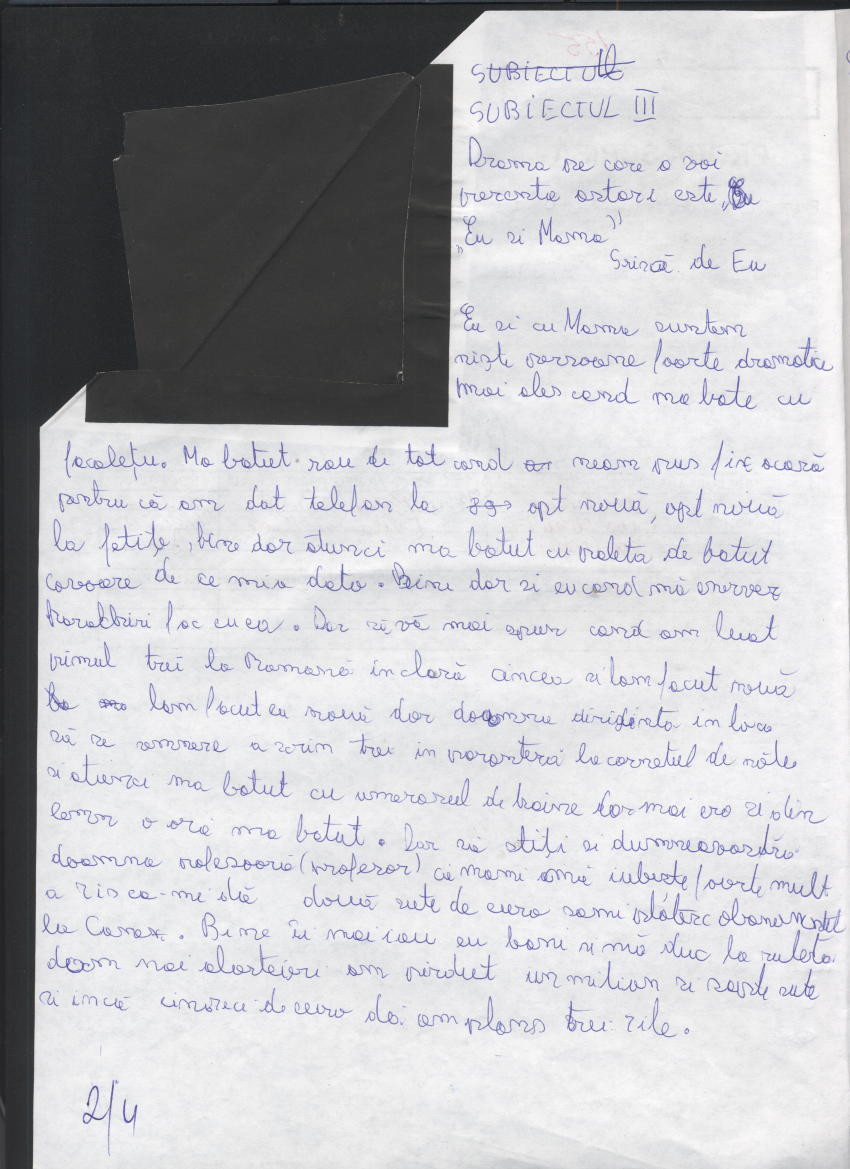 SUBIECTUL
SUBIECTUL III
Drama pe care o voi
prezenta astazi este „Eu
„Eu si Mama”
Srisă de Eu
Eu si cu Mama suntem
niște persoane foarte dramatice
mai ales cand ma bate cu
facalețu. Ma batut rau de tot cand neam pus fix acasă
pentru că am dat telefon la opt nouă, opt nouă
la fetițe, bine dar atunci ma batut cu paleta de batut
covoare de ce mi-a dato. Bine dar si eu cand mă enervez
fac cu ea. Dar să vă mai spun cand am luat
primul trei la Romană in clasă cincea si lam facut nouă
lam facut eu nouă dar doamna diriginta in loc
să se semneze a scris trei in paranteză la carnetul de note
si atunci ma batut cu umerasul de haine dar mai era si din
lemn o oră ma batut. Dar să stiți si dumneavoastra
doamna profesoară (profesor) că mami mă iubește foarte mult
a zis ca-mi dă două sute de euro sami plătesc abonamentul
la Conex. Bine îi mai iau eu bani si mă duc la ruleta.
doam mai alaltaieri am pierdut un milion si sapte sute
si incă cinzeci de euro da am plans trei zile.
2/4